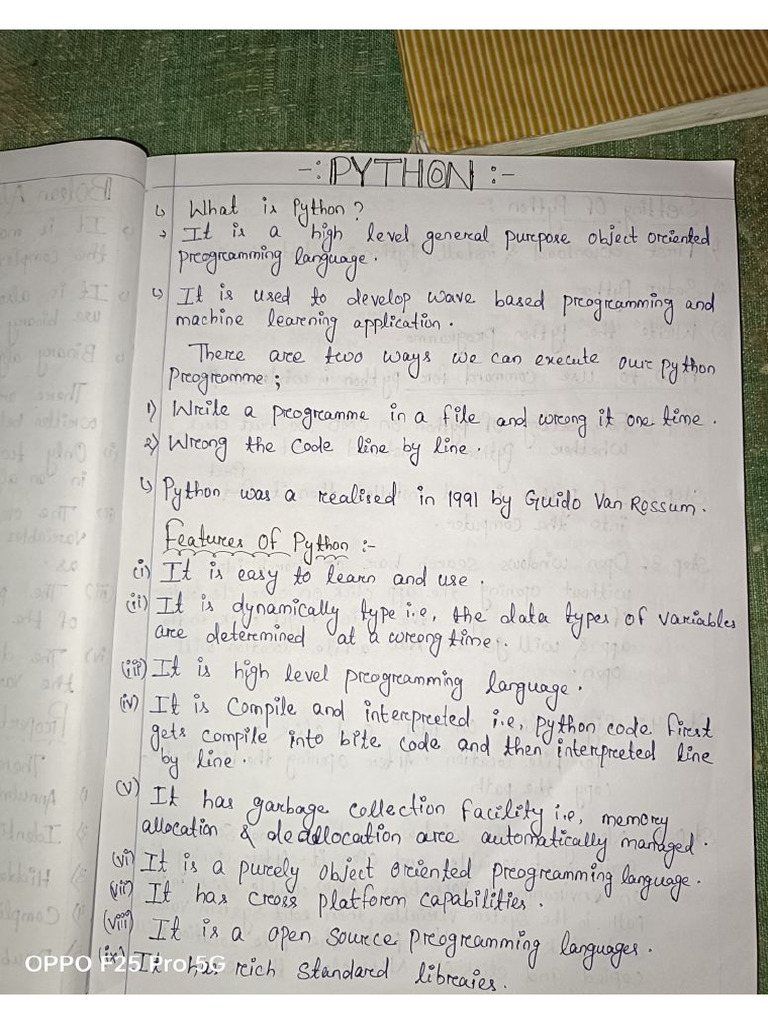 -: PYTHON :-
↳ What is Python?
→ It is a high level general purcpose object orciented
prcogrcamming language.
↳ It is used to develop wave based prcogrcamming and
machine learcning application.
There arce two ways we can execute ourc python
Prcogrcamme;
1) Wrcite a prcogrcamme in a file and wrcong it one time.
2) Wrcong the code line by line.
↳ Python was a realised in 1991 by Guido Van Rossum.
Featurces of Python :-
(i) It is easy to learcn and use.
(ii) It is dynamically type i.e, the data types of variables
arce detercmined at a wrcong time.
(iii) It is high level prcogrcamming language.
(iv) It is compile and intercprceted i.e, python code firc​st
gets compile into bite code and then intercprceted line
by line.
(v) It has garbage collection facility i.e, memorcy
allocation & deallocation arce automatically managed.
(vi) It is a purcely object orciented prcogrcamming language.
(vii) It has crcoss platforcm capabilities.
(viii) It is a open sourcce prcogrcamming languages.
(ix) It has rich standarcd librcaries.
OPPO F25 Pro 5G